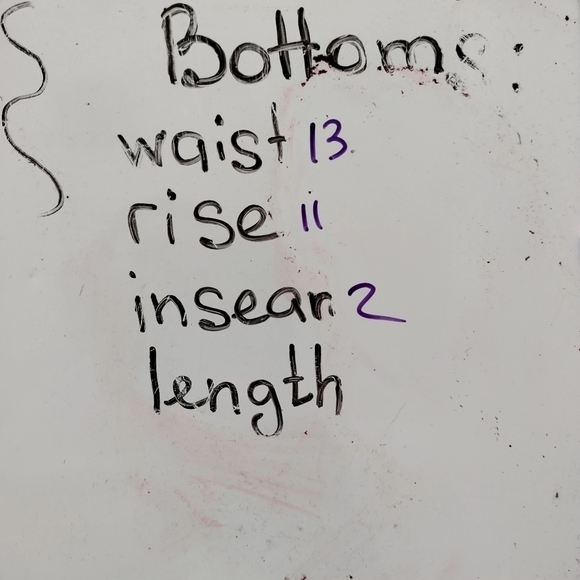 Bottoms:
waist 13
rise 11
insean 2
length